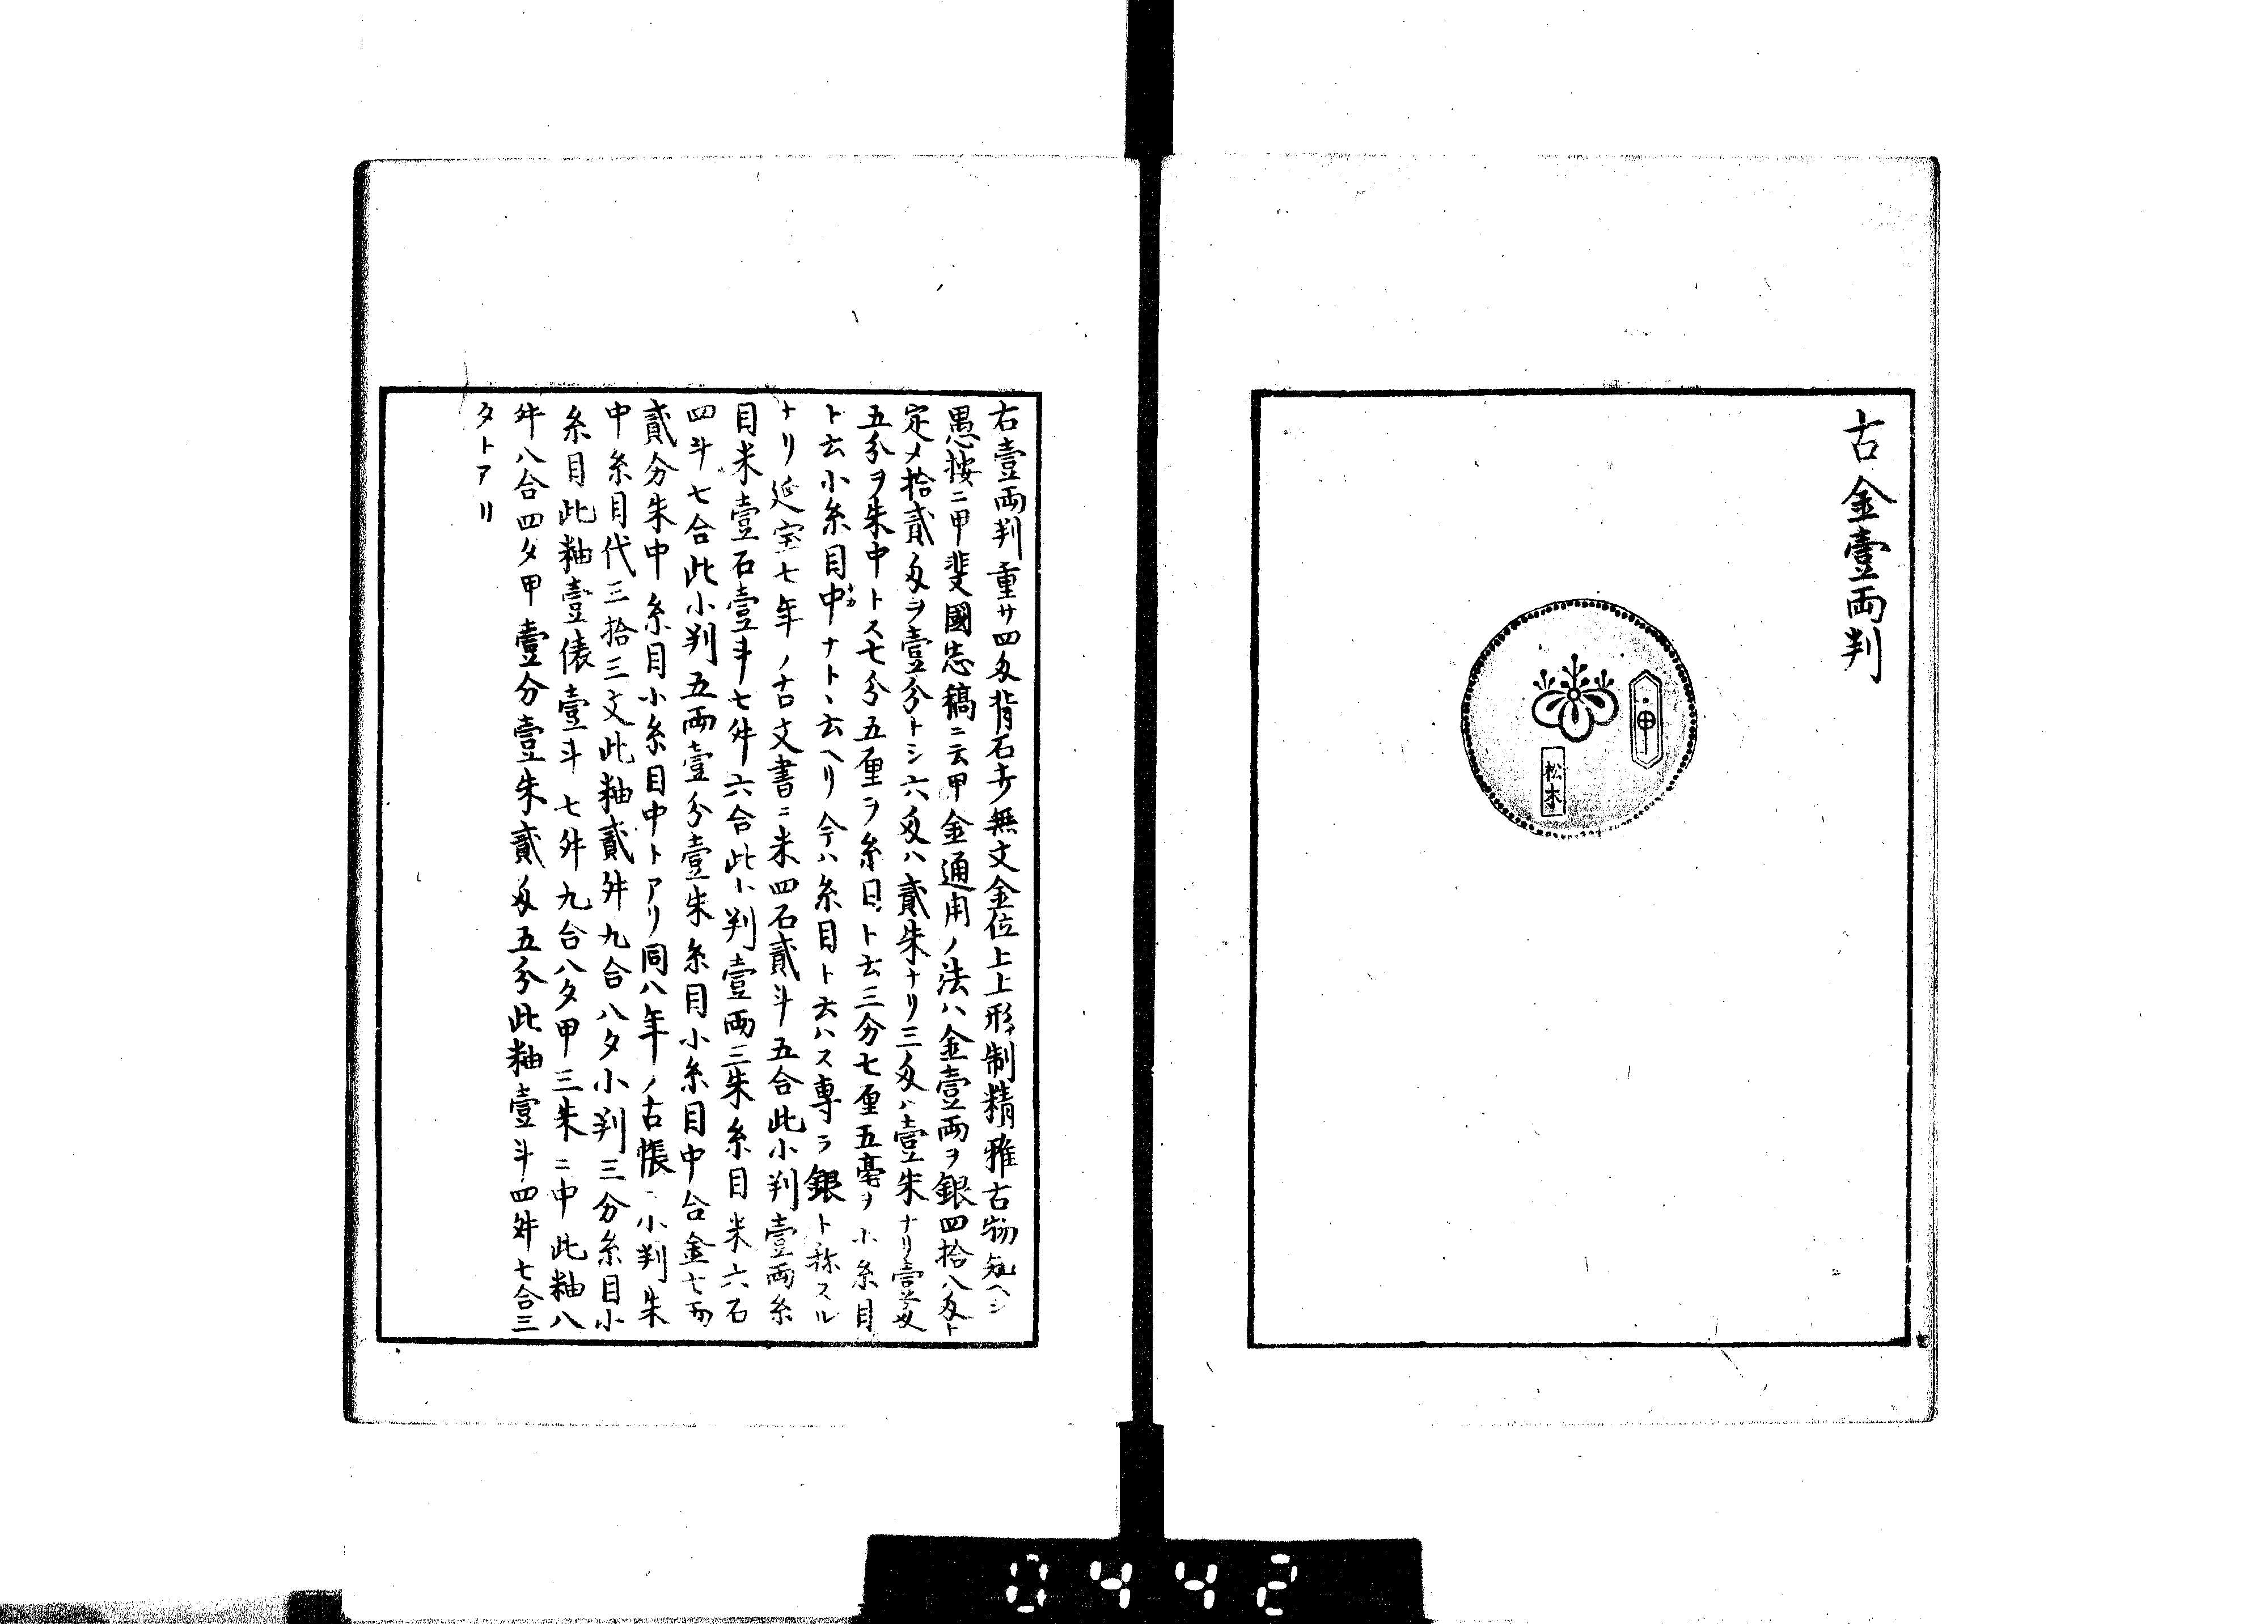 古金壹両判
甲
松木
右壹両判重サ四匁背石ナ無文金位上上形制精雅古物知ヘシ
愚按ニ甲斐國志稿ニ云甲金通用ノ法ハ金壹両ヲ銀四拾八匁ト
定メ拾貳匁ヲ壹分トシ六匁ハ貳朱ナリ三匁ハ壹朱ナリ壹匁
五分ヲ朱中トス七分五厘ヲ糸目ト云三分七厘五毫ヲ小糸目
ト云小糸目中ナトヽ云ヘリ今ハ糸目ト云ハス専ラ銀ト称スル
ナリ延宝七年ノ古文書ニ米四石貳斗五合此小判壹両糸
目米壹石壹斗七舛六合此小判壹両三朱糸目米六石
四斗七合此小判五両壹分壹朱糸目小糸目中合金七両
貳分朱中糸目小糸目中トアリ同八年ノ古帳ニ小判朱
中糸目代三拾三文此籾貳舛九合八夕小判三分糸目小
糸目此籾壹俵壹斗七舛九合八夕甲三朱ニ中此籾八
舛八合四夕甲壹分壹朱貳匁五分此籾壹斗四舛七合三
夕トアリ
0442